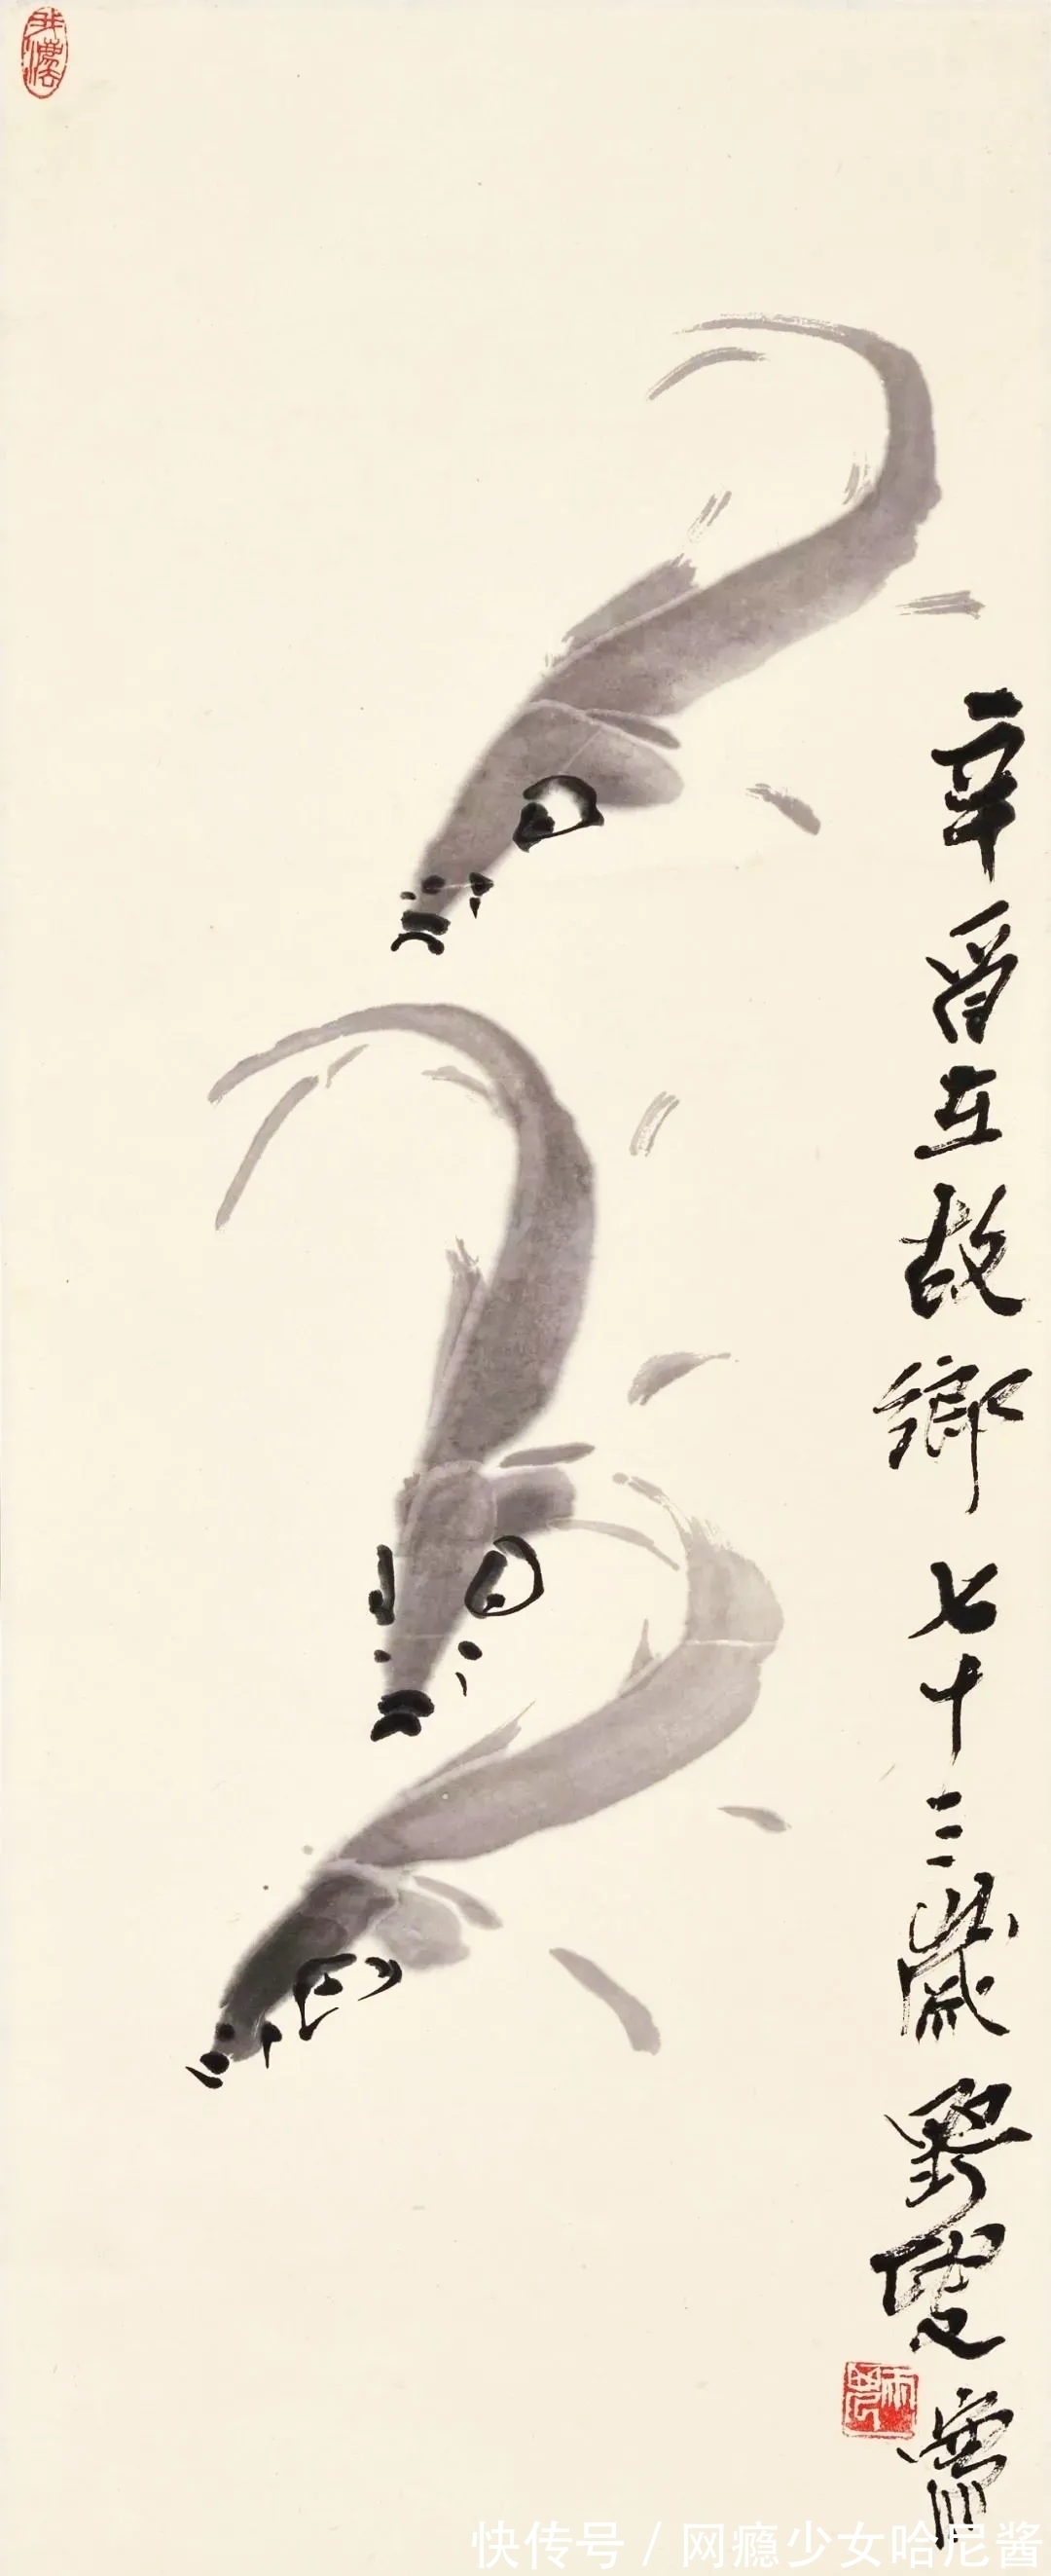 辛酉在故鄉七十三歲野叟
快传号 / 网瘾少女哈尼酱